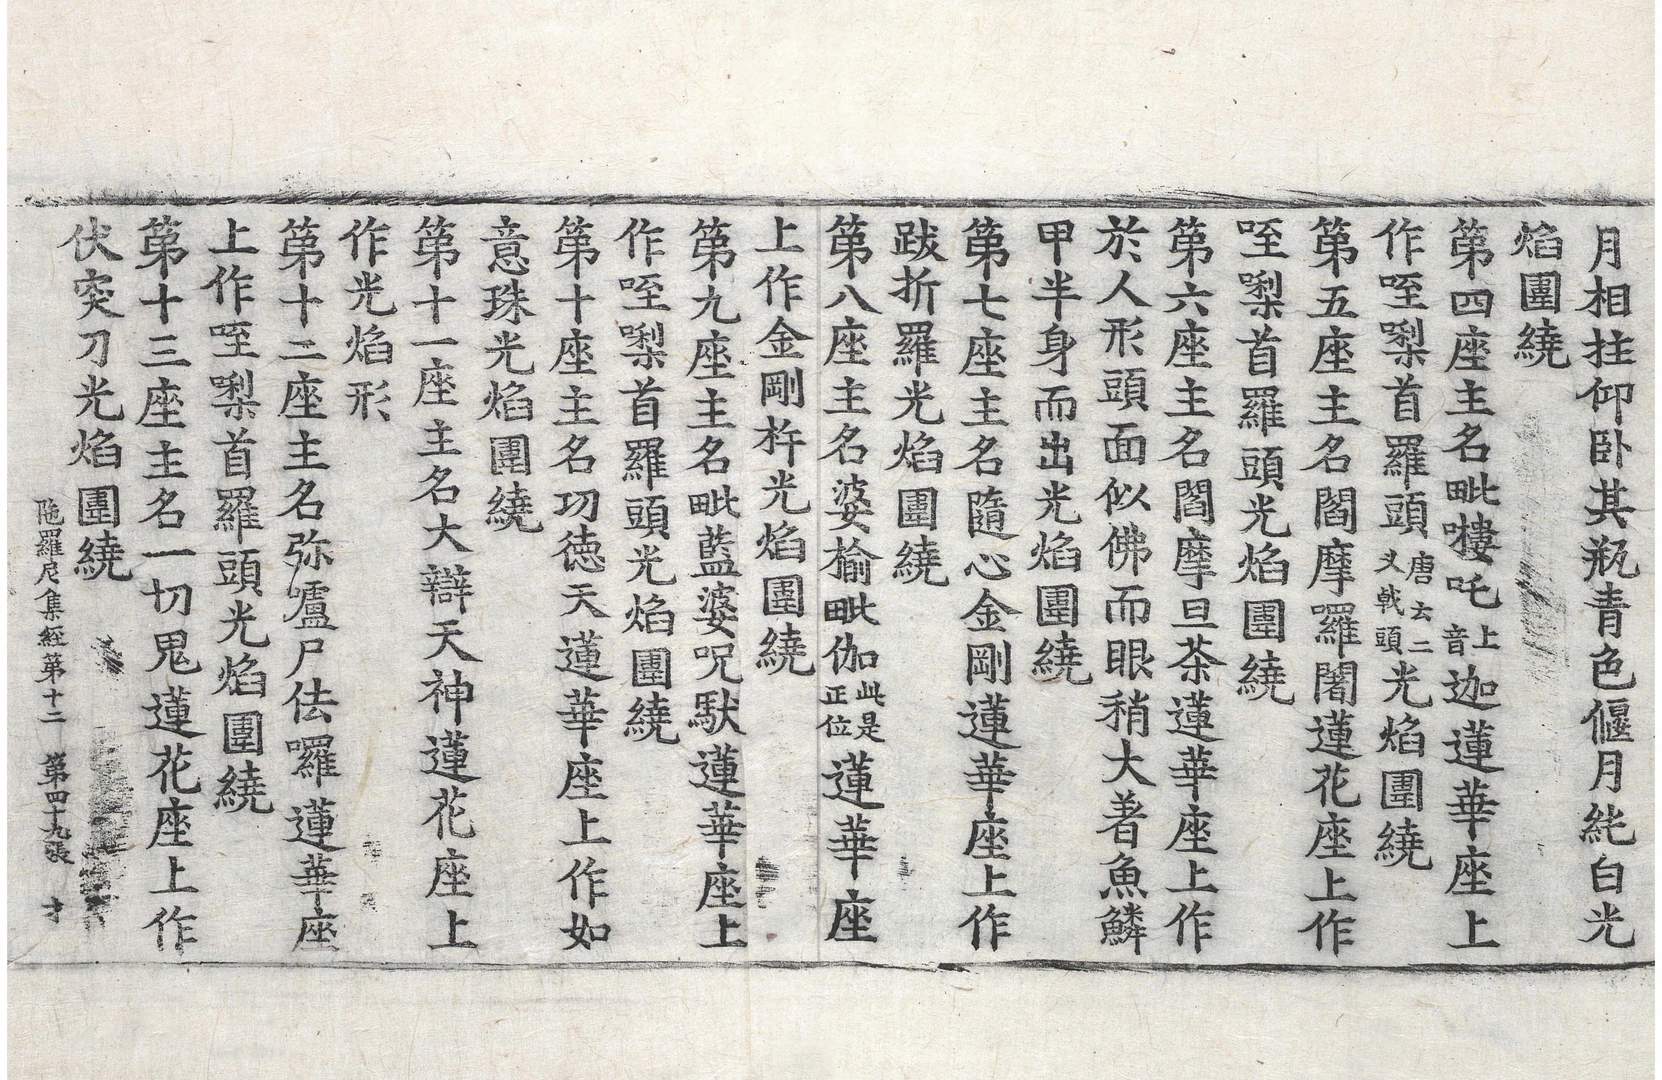 月相拄仰卧其瓶青色偃月純白光
焰團繞
第四座主名毗嘍吒上音迦蓮華座上
作咥㗚首羅頭唐云二叉戟頭光焰團繞
第五座主名閻摩囉闍蓮花座上作
咥㗚首羅頭光焰團繞
第六座主名閻摩旦荼蓮華座上作
於人形頭面似佛而眼稍大著魚鱗
甲半身而出光焰團繞
第七座主名隨心金剛蓮華座上作
跋折羅光焰團繞
第八座主名婆揄毗伽此是正位蓮華座
上作金剛杵光焰團繞
第九座主名毗藍婆呪馱蓮華座上
作咥㗚首羅頭光焰團繞
第十座主名功德天蓮華座上作如
意珠光焰團繞
第十一座主名大辯天神蓮花座上
作光焰形
第十二座主名弥嚧尸佉囉蓮華座
上作咥㗚首羅頭光焰團繞
第十三座主名一切鬼蓮花座上作
伏突刀光焰團繞
陁羅尼集經第十二 第四十九張 才